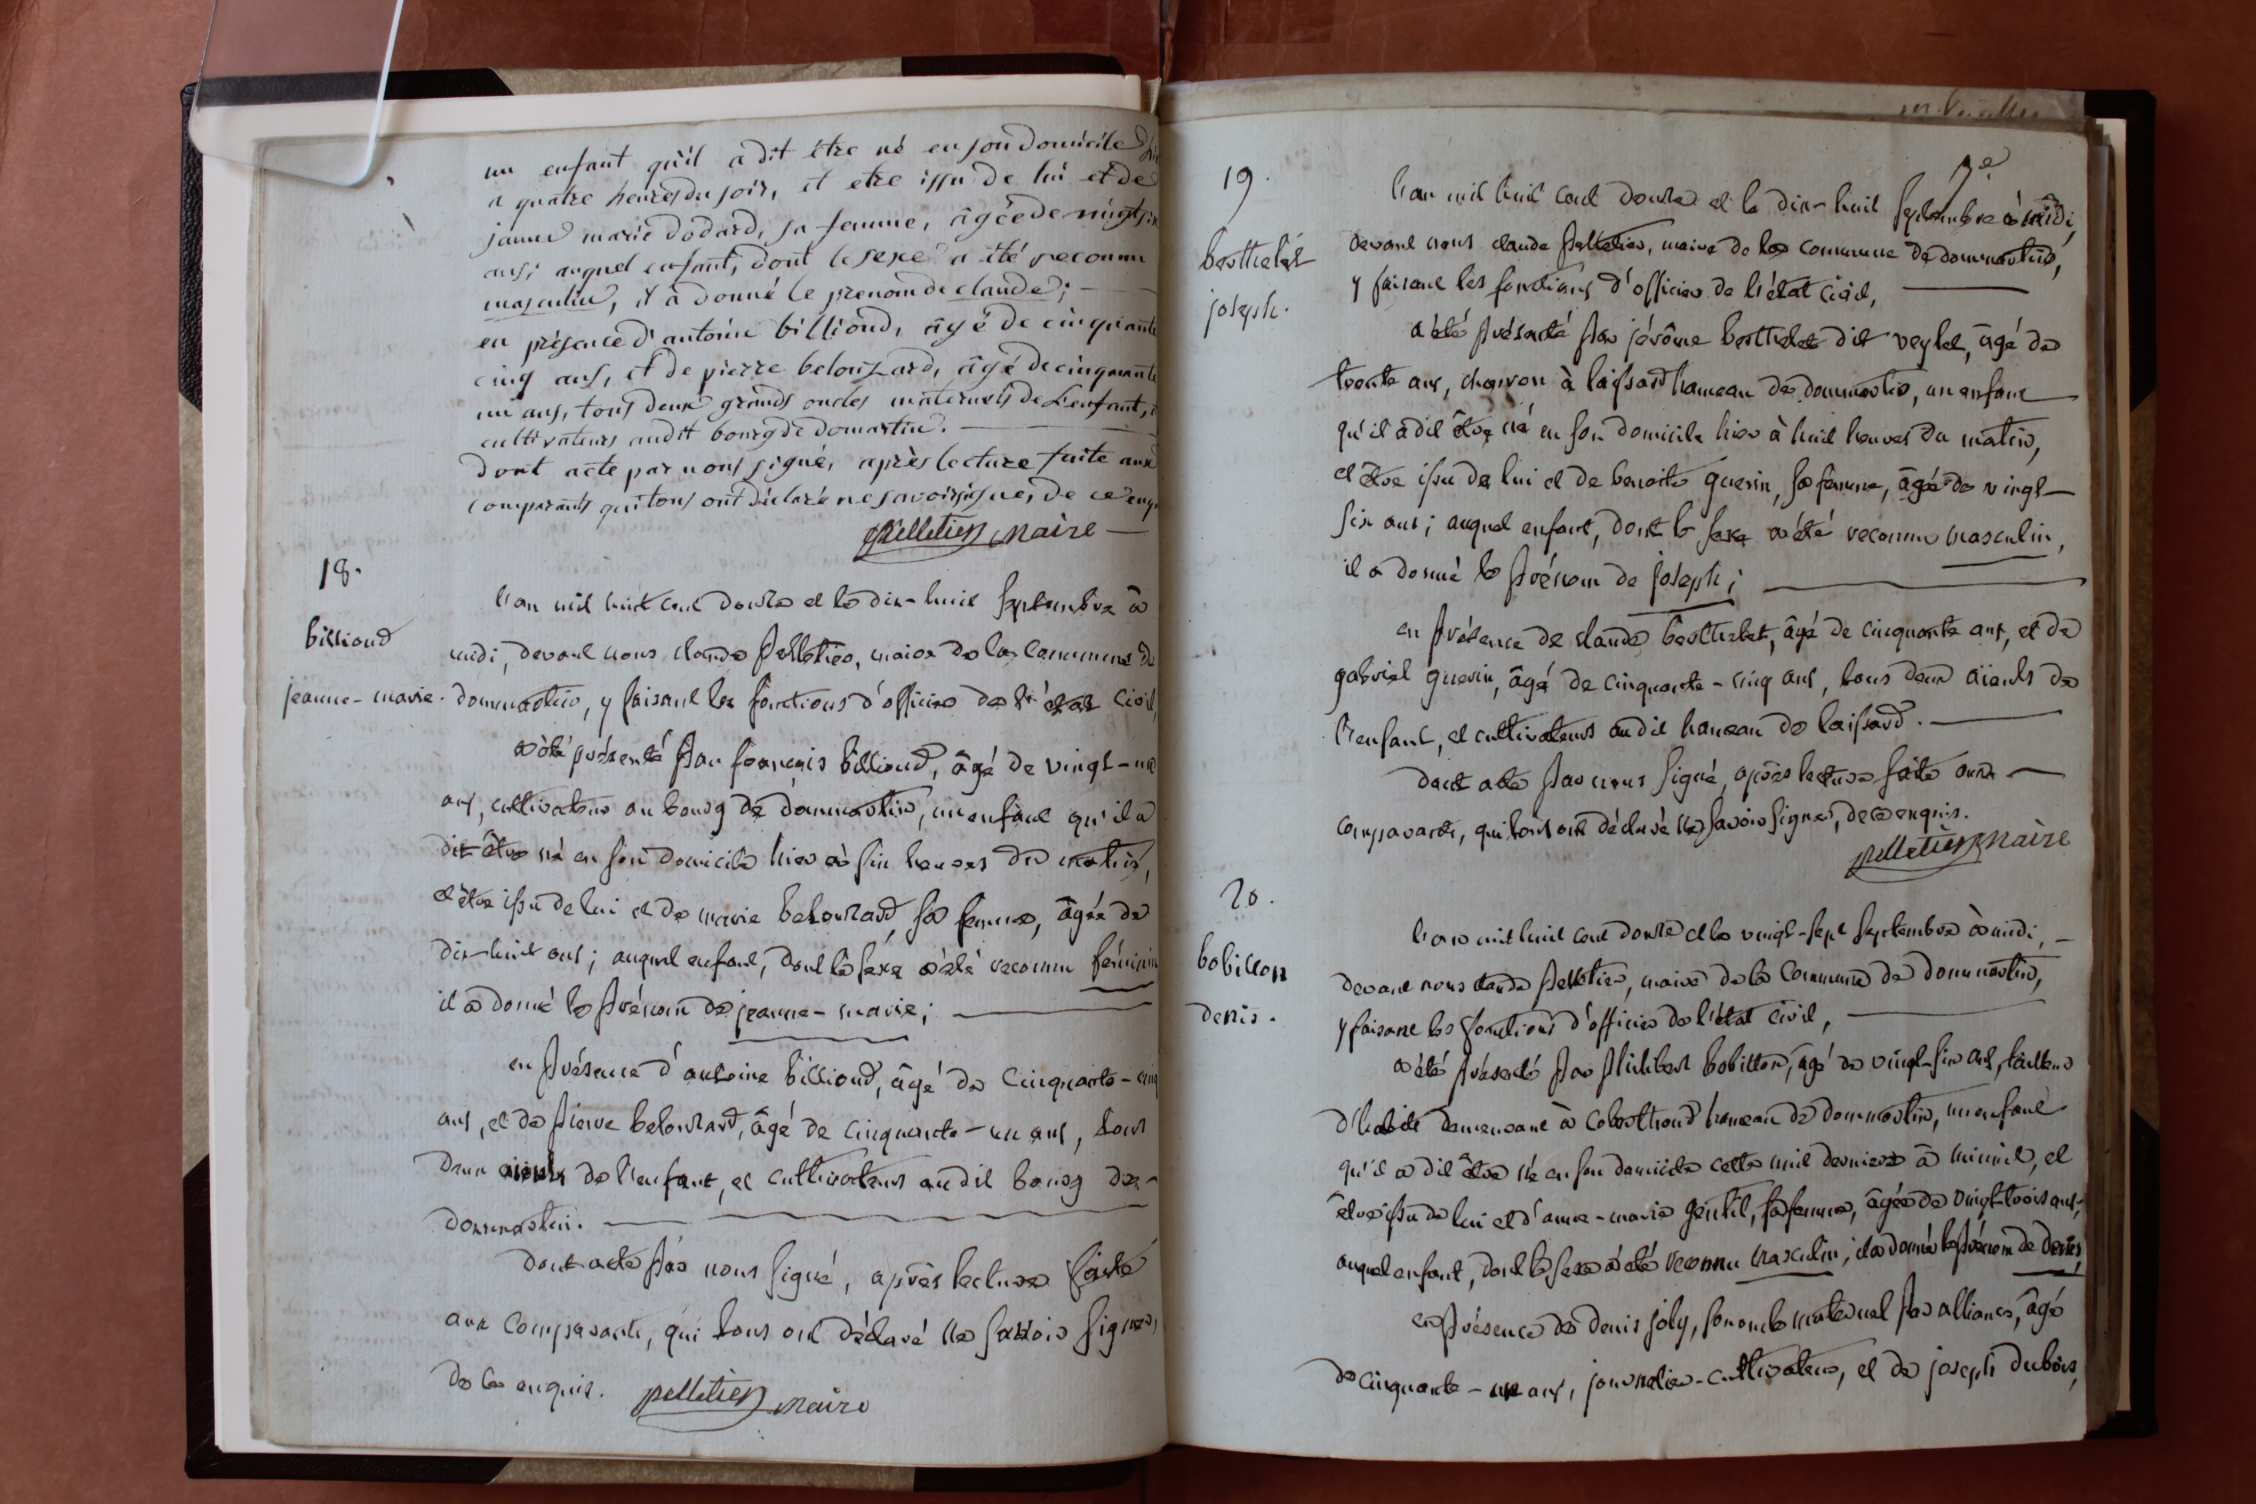 un enfant qu'il a dit être né en son domicile hier
a quatre heures du soir, et etre issu de lui et de
jeanne marie dodard, sa femme, âgée de vingt six
ans; auquel enfant, dont le sexe a été reconnu
masculin, il a donné le prenom de claude;
en présence d'antoine billioud, âgé de cinquante
cinq ans, et de pierre belouzard, âgé de cinquante
un ans, tous deux grands oncles maternels de L'enfant, et
cultivateurs audit bourg de domartin.
dont acte par nous signé, après lecture faite aux
comparants qui tous ont déclaré ne savoir signer, de ce enquis
pelletier maire
18.
billioud
jeanne-marie.
l'an mil huit cent douze et le dix-huit septembre à
midi, devant nous claude pelletier, maire de la commune de
dommartin, y faisant les fonctions d'officier de l'état civil,
a été présenté par françois billioud, âgé de vingt-un
ans, cultivateur au bourg de dommartin, un enfant qu'il a
dit être né en son domicile hier à six heures du matin,
et être issu de lui et de marie belouzard, sa femme, âgée de
dix-huit ans; auquel enfant, dont le sexe a été reconnu féminin
il a donné le prénom de jeanne-marie;
en présence d'antoine billioud, âgé de cinquante-cinq
ans, et de pierre belouzard, âgé de cinquante-un ans, tous
deux aïeuls de l'enfant, et cultivateurs au dit bourg de
dommartin.
dont acte par nous signé, après lecture faite
aux comparants, qui tous ont déclaré ne savoir signer,
de ce enquis. pelletier maire
7e
19.
berthelet
joseph.
l'an mil huit cent douze et le dix-huit septembre à midi,
devant nous claude pelletier, maire de la commune de dommartin,
y faisant les fonctions d'officier de l'état civil,
a été présenté par jérôme berthelet dit veylet, âgé de
trente ans, charron à laissard hameau de dommartin, un enfant
qu'il a dit être né en son domicile hier à huit heures du matin,
et être issu de lui et de benoite guerin, sa femme, âgée de vingt-
six ans; auquel enfant, dont le sexe a été reconnu masculin,
il a donné le prénom de joseph;
en présence de claude berthelet, âgé de cinquante ans, et de
gabriel guerin, âgé de cinquante-cinq ans, tous deux aïeuls de
l'enfant, et cultivateurs au dit hameau de laissard.
dont acte par nous signé, après lecture faite aux
comparants, qui tous ont déclaré ne savoir signer, de ce enquis.
pelletier maire
20.
bobillon
denis.
l'an mil huit cent douze et le vingt-sept septembre à midi,
devant nous claude pelletier, maire de la commune de dommartin,
y faisant les fonctions d'officier de l'état civil,
a été présenté par philibert bobillon, âgé de vingt-six ans, tailleur
d'habits demeurant à coberthoud hameau de dommartin, un enfant
qu'il a dit être né en son domicile cette nuit derniere à minuit, et
être issu de lui et d'anne-marie gentil, sa femme, âgée de vingt-trois ans;
auquel enfant, dont le sexe a été reconnu masculin; il a donné le prénom de denis;
en présence de denis joly, son oncle maternel par alliance, âgé
de cinquante-un ans, journalier-cultivateur, et de joseph dubois,